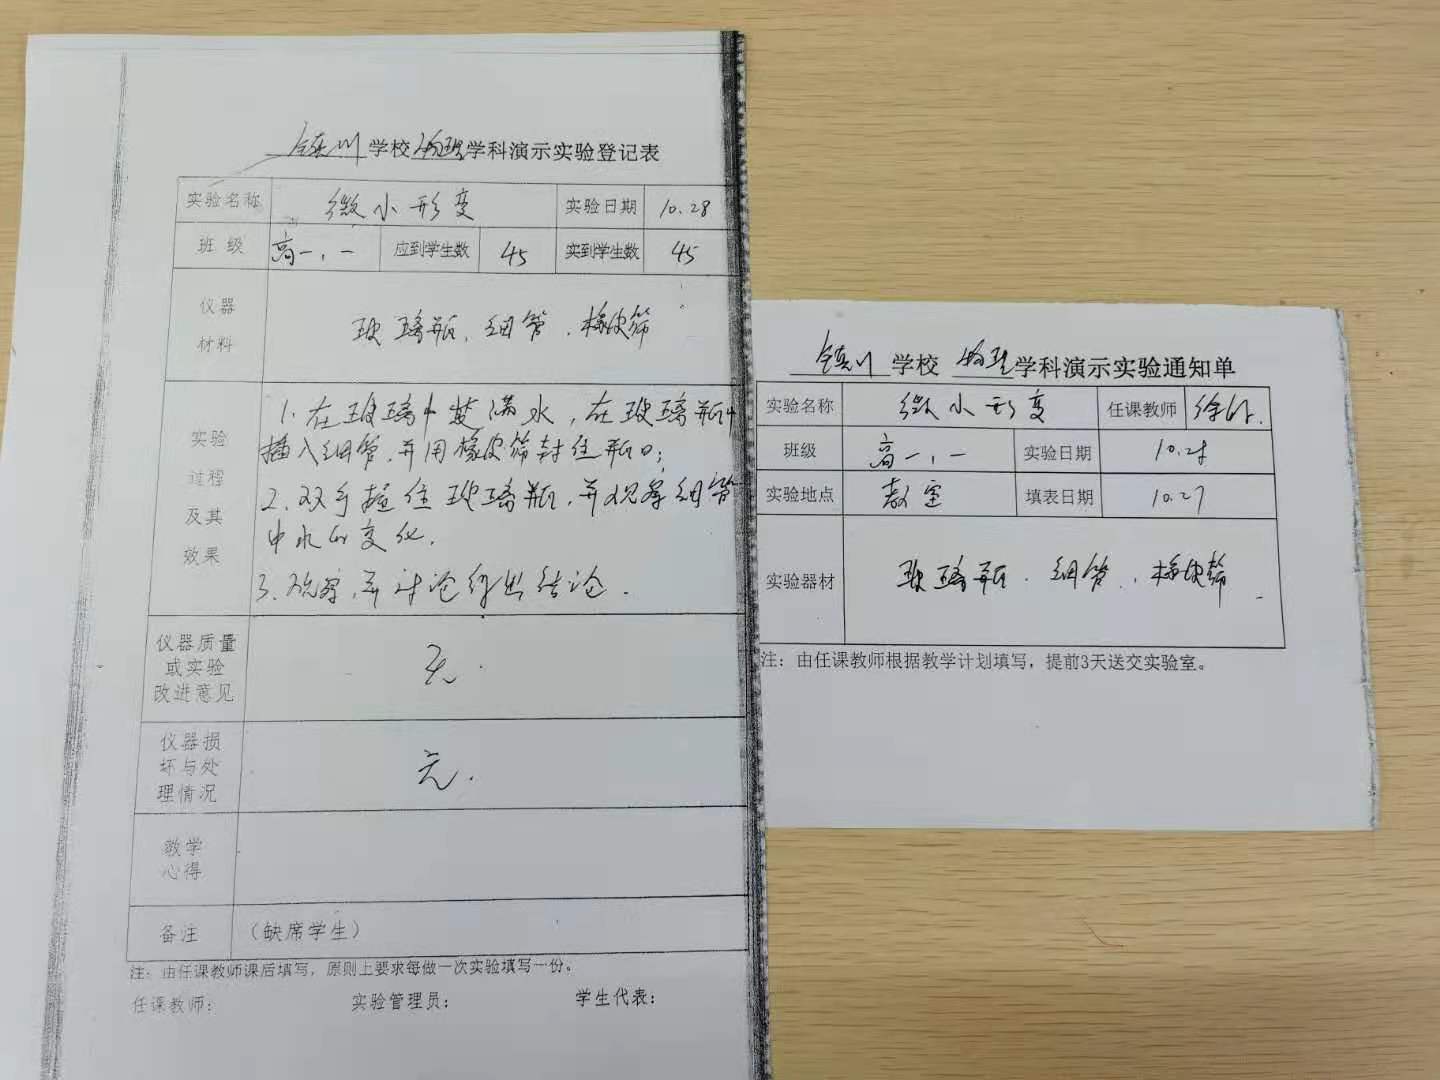 镇川学校物理学科演示实验登记表
实验名称 微小形变 实验日期 10.28
班 级 高一、一 应到学生数 45 实到学生数 45
仪器
材料
玻璃瓶、细管、橡皮筛
实验
过程
及其
效果
1.在玻璃中装满水,在玻璃瓶中
插入细管,并用橡皮筛封住瓶口;
2.双手握住玻璃瓶,并观察细管
中水的变化.
3.观察,并讨论得出结论.
仪器质量
或实验
改进意见
无.
仪器损
坏与处
理情况
无.
教学
心得
备注 (缺席学生)
注:由任课教师课后填写,原则上要求每做一次实验填写一份。
任课教师: 实验管理员: 学生代表:
镇川学校 物理学科演示实验通知单
实验名称 微小形变 任课教师 徐
班级 高一、一 实验日期 10.28
实验地点 教室 填表日期 10.27
实验器材 玻璃瓶、细管、橡皮筛
注:由任课教师根据教学计划填写,提前3天送交实验室。